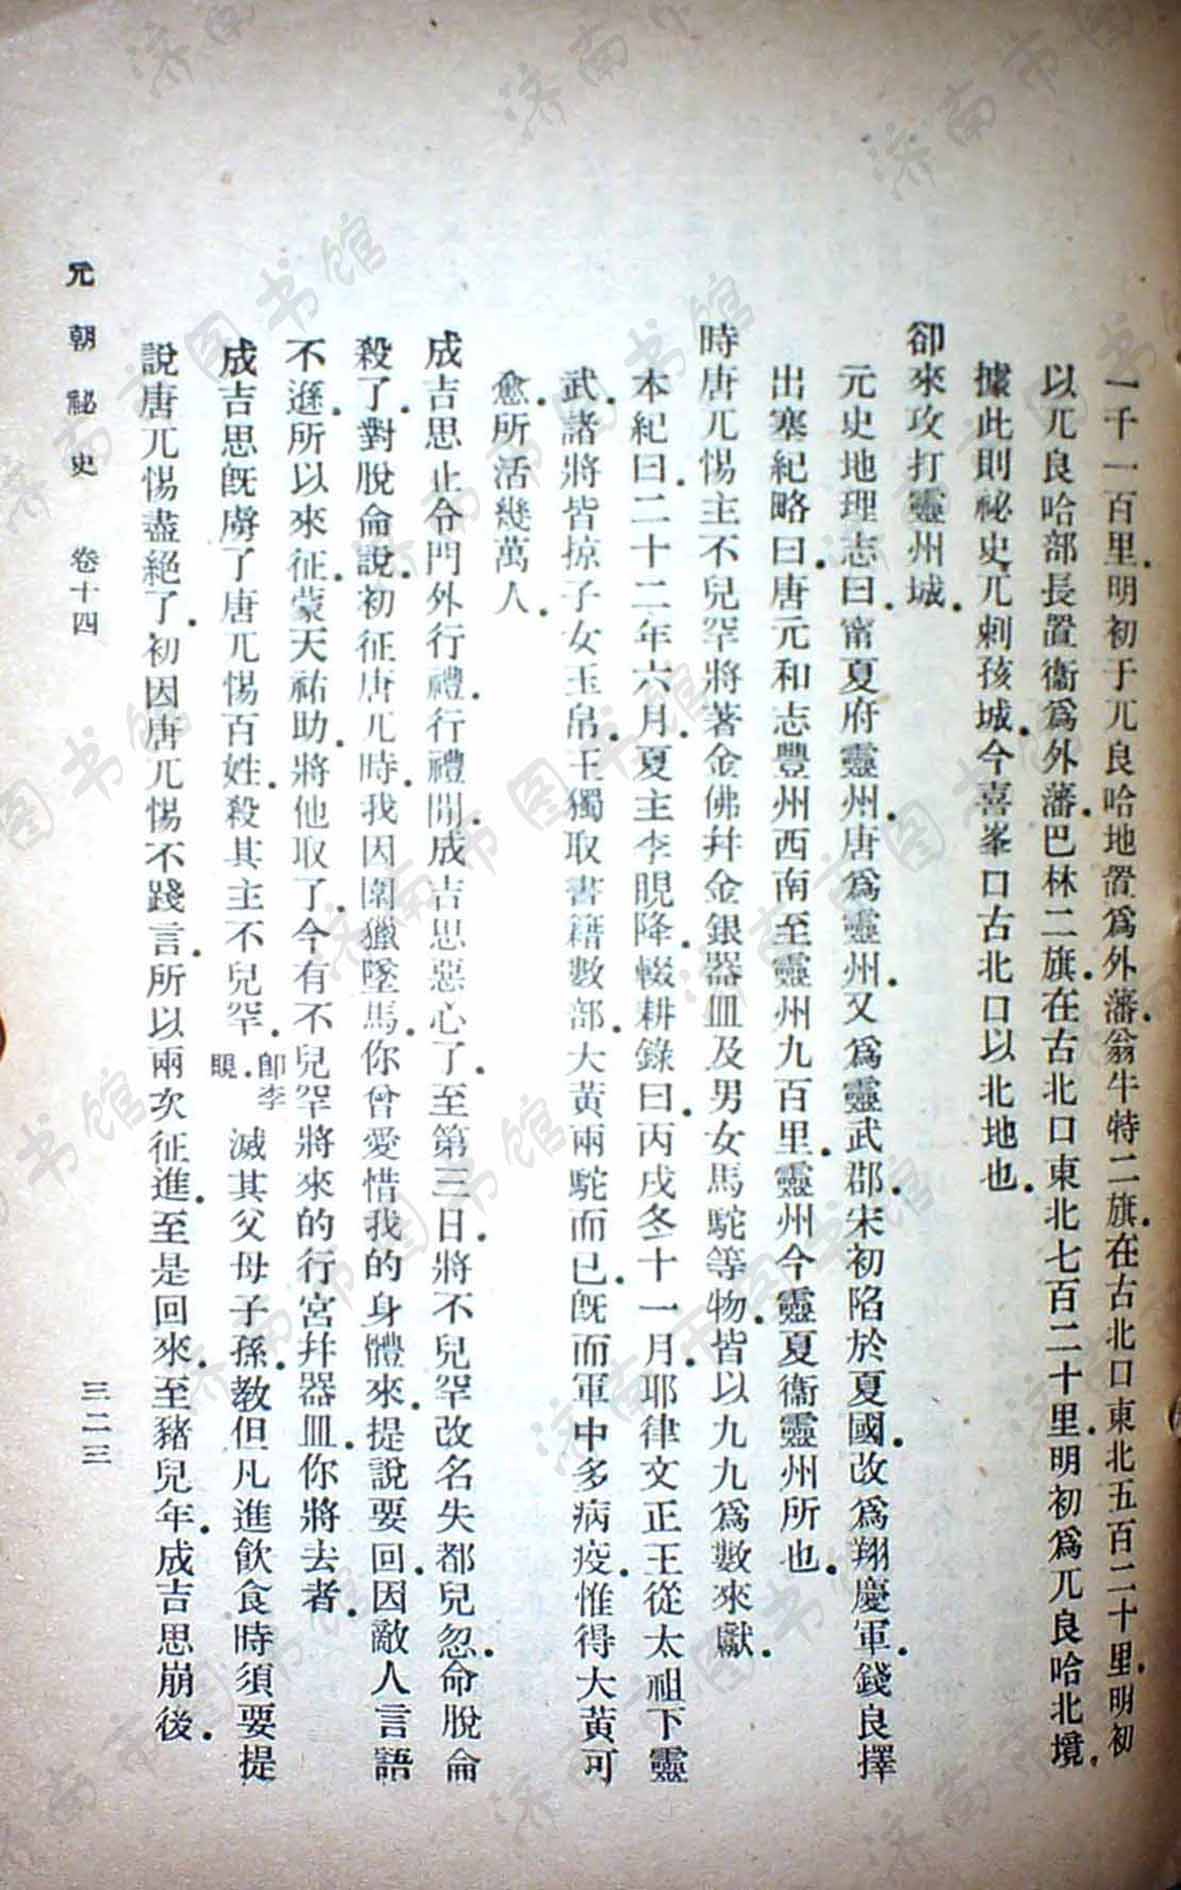 一千一百里．明初于兀良哈地置爲外藩．翁牛特二旗．在古北口東北五百二十里．明初
以兀良哈部長置衞爲外藩．巴林二旗．在古北口東北七百二十里．明初爲兀良哈北境．
據此則祕史兀剌孩城．今喜峯口古北口以北地也．
卻來攻打靈州城．
元史地理志曰．甯夏府靈州．唐爲靈州．又爲靈武郡．宋初陷於夏國．改爲翔慶軍．錢良擇
出塞紀略曰．唐元和志豐州西南至靈州九百里．靈州今靈夏衞靈州所也．
時唐兀惕主不兒罕將著金佛幷金銀器皿及男女馬駝等物．皆以九九爲數來獻．
本紀曰．二十二年六月．夏主李晛降．輟耕錄曰．丙戌冬十一月．耶律文正王從太祖下靈
武．諸將皆掠子女玉帛．王獨取書籍數部．大黃兩駝而已．旣而軍中多病疫．惟得大黃可
愈．所活幾萬人．
成吉思止令門外行禮．行禮間．成吉思惡心了．至第三日．將不兒罕改名失都兒忽．命脫侖
殺了．對脫侖說．初征唐兀時．我因圍獵墜馬．你曾愛惜我的身體來．提說要回．因敵人言語
不遜．所以來征．蒙天祐助．將他取了．今有不兒罕將來的行宮幷器皿．你將去者．
成吉思旣虜了唐兀惕百姓．殺其主不兒罕．卽李晛．滅其父母子孫．教但凡進飮食時須要提
說唐兀惕盡絕了．初因唐兀惕不踐言．所以兩次征進．至是回來．至豬兒年．成吉思崩後．
元朝祕史 卷十四 三二三
济南市图书馆